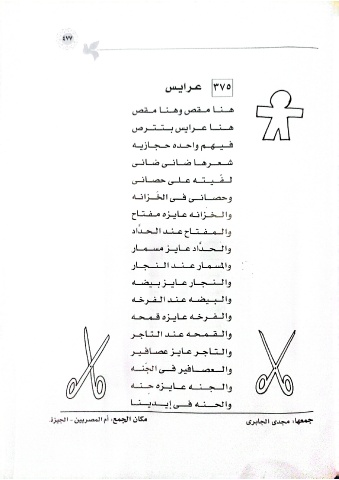 ٤٧٧
٣٧٥ عرايس
هنا مقص وهنا مقص
هنا عرايس بتترص
فيهم واحده حجازيه
شعرها ضانى ضانى
لفيته على حصانى
وحصانى فى الخزانه
والخزانه عايزه مفتاح
والمفتاح عند الحدّاد
والحدّاد عايز مسمار
والمسمار عند النجار
والنجار عايز بيضه
والبيضه عند الفرخه
والفرخه عايزه قمحه
والقمحه عند التاجر
والتاجر عايز عصافير
والعصافير فى الجنه
والجنه عايزه حنه
والحنه فى إيدينا
جمعها: مجدى الجابرى
مكان الجمع: أم المصريين - الجيزة.